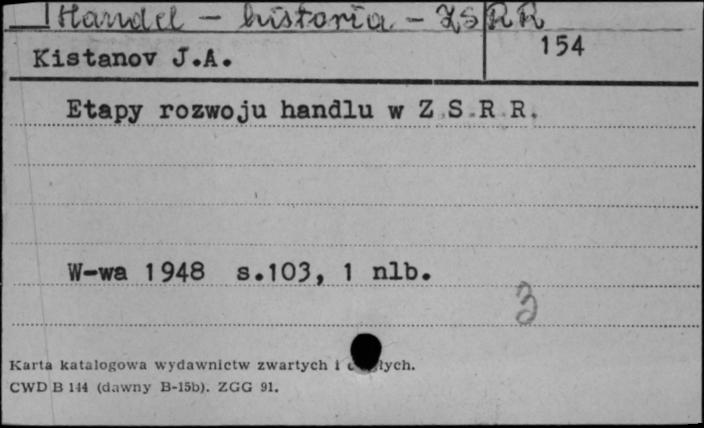 Handel - historia - ZSRR
154
Kistanov J.A.
Etapy rozwoju handlu w Z.S.R.R.
W-wa 1948 s.103, 1 nlb.
3
Karta katalogowa wydawnictw zwartych i
CWD B 144 (dawny B-15b). ZGG 91.